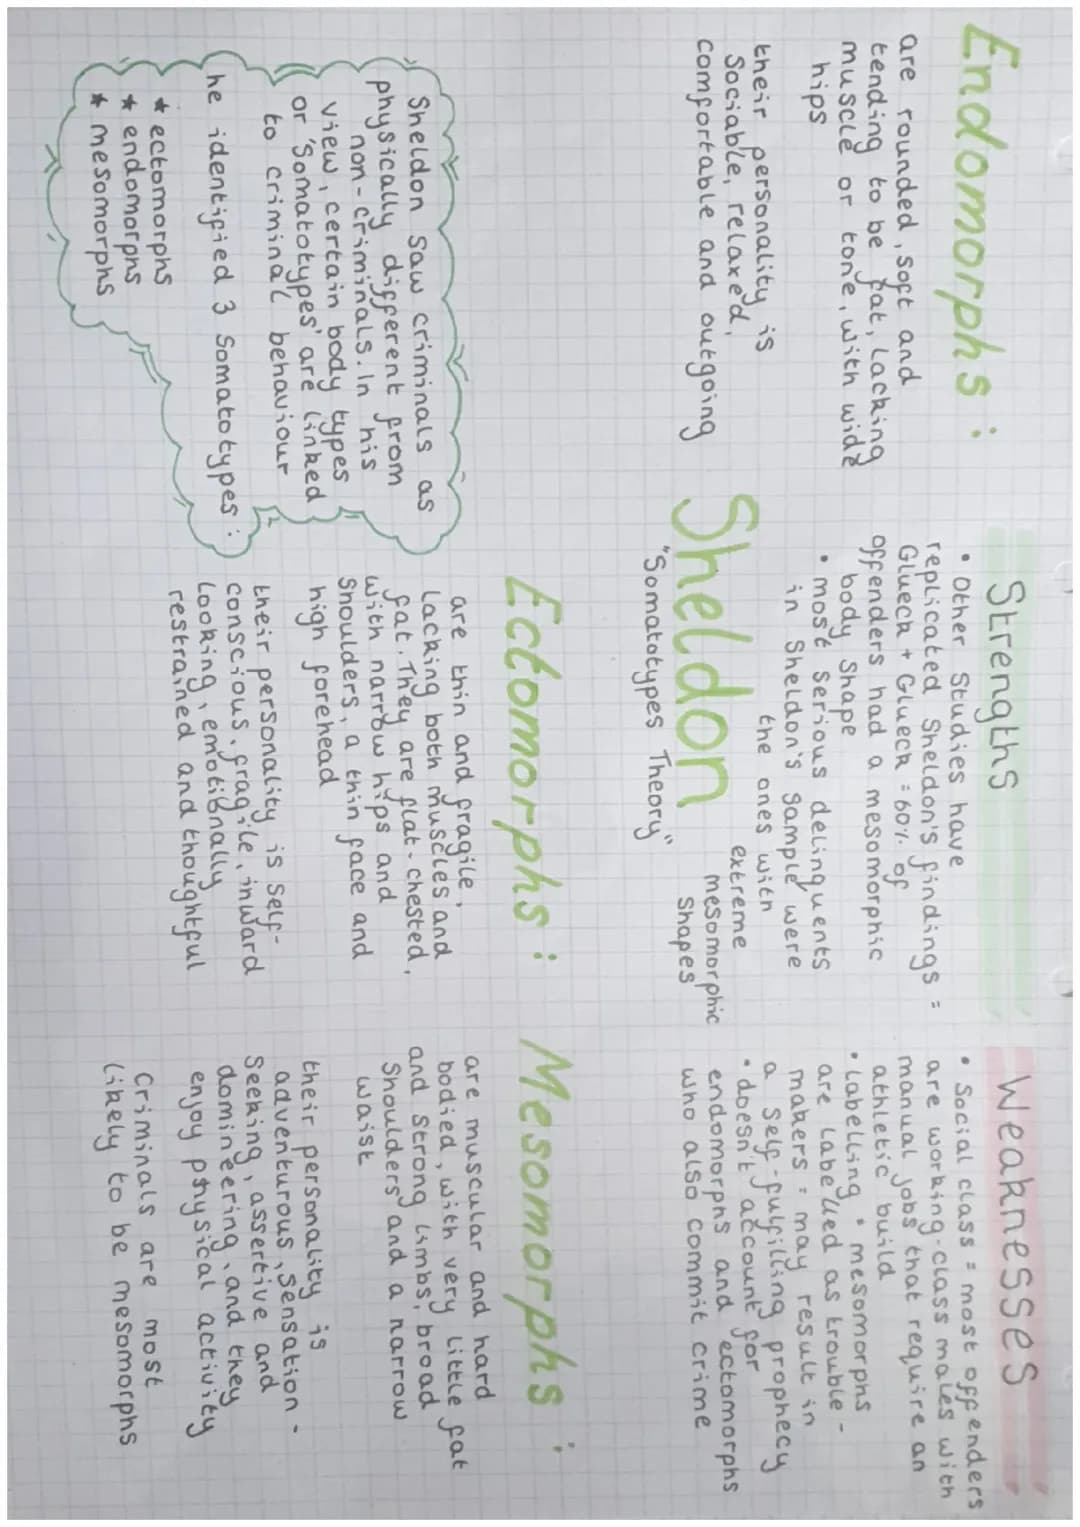 Endomorphs :
are rounded, soft and
tending to be fat, lacking
muscle or tone, with wide
hips
their personality is
Sociable, relaxed,
comfortable and outgoing
Strengths
• Other Studies have
replicated Sheldon's findings =
Glueck + Glueck = 60% of
offenders had a mesomorphic
body Shape
• most serious delinquents
in Sheldon's sample were
the ones with
extreme
mesomorphic
Shapes
Weaknesses
• Social class = most offenders
are working-class males with
manual jobs that require an
athletic build
• labelling • mesomorphs
are labelled as trouble-
makers = may result in
a Self-fulfilling prophecy
• doesn't account for
endomorphs and ectomorphs
who also commit crime
Sheldon
"Somatotypes Theory"
Sheldon saw criminals as
physically different from
non-criminals. In his
view, certain body types
or 'Somatotypes' are linked
to criminal behaviour
he identified 3 Somatotypes :
* ectomorphs
* endomorphs
* mesomorphs
Ectomorphs :
are thin and fragile,
lacking both muscles and
fat. They are flat-chested,
with narrow hips and
Shoulders, a thin face and
high forehead
their personality is self-
conscious, fragile, inward
looking, emotionally
restrained and thoughtful
Mesomorphs :
are muscular and hard
bodied, with very little fat
and strong limbs, broad
Shoulders and a narrow
waist
their personality is
adventurous, sensation-
Seeking, assertive and
domineering, and they
enjoy physical activity
Criminals are most
likely to be mesomorphs